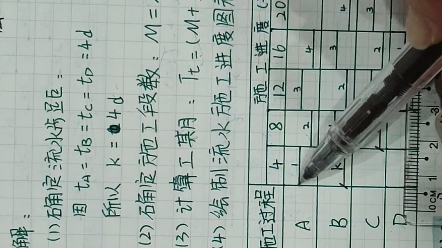 解:
(1)确定流水步距:
因 tA=tB=tC=tD=4d
所以 K=4d
(2)确定施工段数: M=
(3)计算工期: Tt=(M+
(4)绘制流水施工进度图
施工过程 施工进度(
4 8 12 16 20
A 1 2 3 4
B K 1 2 3 4
C 1 2 3
D 1
0CM 1 2 3